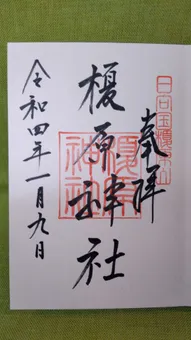 奉拝
日向国榎原山
榎原神社
榎原神社
令和四年一月九日